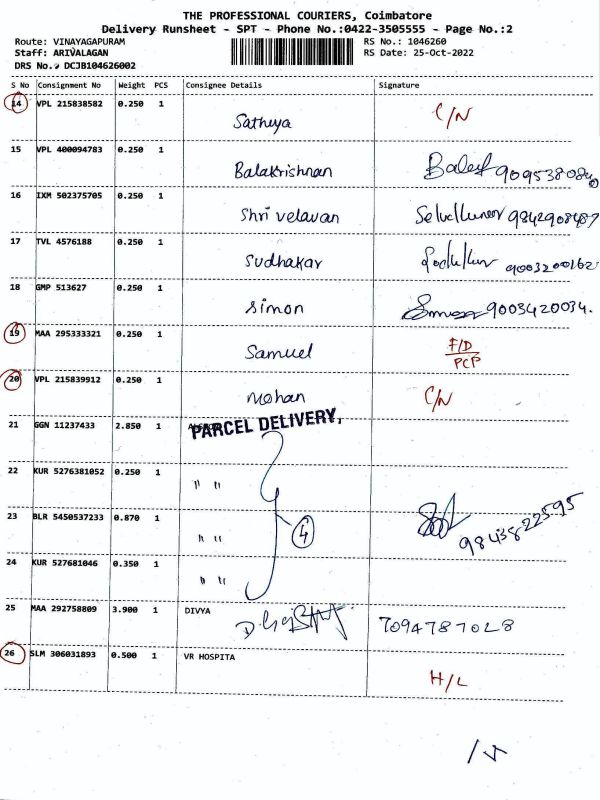 THE PROFESSIONAL COURIERS, Coimbatore
Delivery Runsheet - SPT - Phone No.:0422-3505555 - Page No.:2
Route: VINAYAGAPURAM RS No.: 1046260
Staff: ARIVALAGAN RS Date: 25-Oct-2022
DRS No.: DCJB104626002
S No Consignment No Weight PCS Consignee Details Signature
14 VPL 215838582 0.250 1 Sathya C/N
15 VPL 400094783 0.250 1 Balakrishnan
16 IXM 502375705 0.250 1 Shri velavan 9842908487
17 TVL 4576188 0.250 1 Sudhakar 9003200162
18 GMP 513627 0.250 1 Simon 9003420034.
19 MAA 295333321 0.250 1 Samuel F/D
PCP
20 VPL 215839912 0.250 1 Mohan C/N
21 GGN 11237433 2.850 1 PARCEL DELIVERY,
22 KUR 5276381052 0.250 1 " "
23 BLR 5450537233 0.870 1 " " 4 9843822595
24 KUR 527681046 0.350 1 " "
25 MAA 292758809 3.900 1 DIVYA 7094787028
26 SLM 306031893 0.500 1 VR HOSPITA H/L